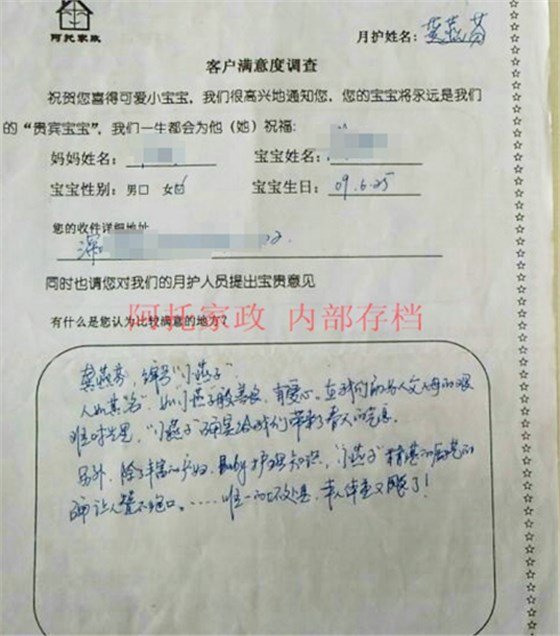 阿托家政
月护姓名：龚燕芬
客户满意度调查
祝贺您喜得可爱小宝宝，我们很高兴地通知您，您的宝宝将永远是我们
的“贵宾宝宝”，我们一生都会为他（她）祝福：
妈妈姓名： 宝宝姓名：
宝宝性别：男□ 女☑ 宝宝生日：09.6.25
您的收件详细地址
深
同时也请您对我们的月护人员提出宝贵意见
阿托家政 内部存档
有什么是您认为比较满意的地方？
龚燕芬，编号“小燕子”
人如其名，如小燕子般善良，有爱心。在我们初为人父人母的艰
难时光里，“小燕子”确实给我们带来了春天的气息。
另外，除了丰富的产妇、Baby护理知识，“小燕子”精湛的厨艺
确让人赞不绝口。……唯一的坏处是，本人体重又